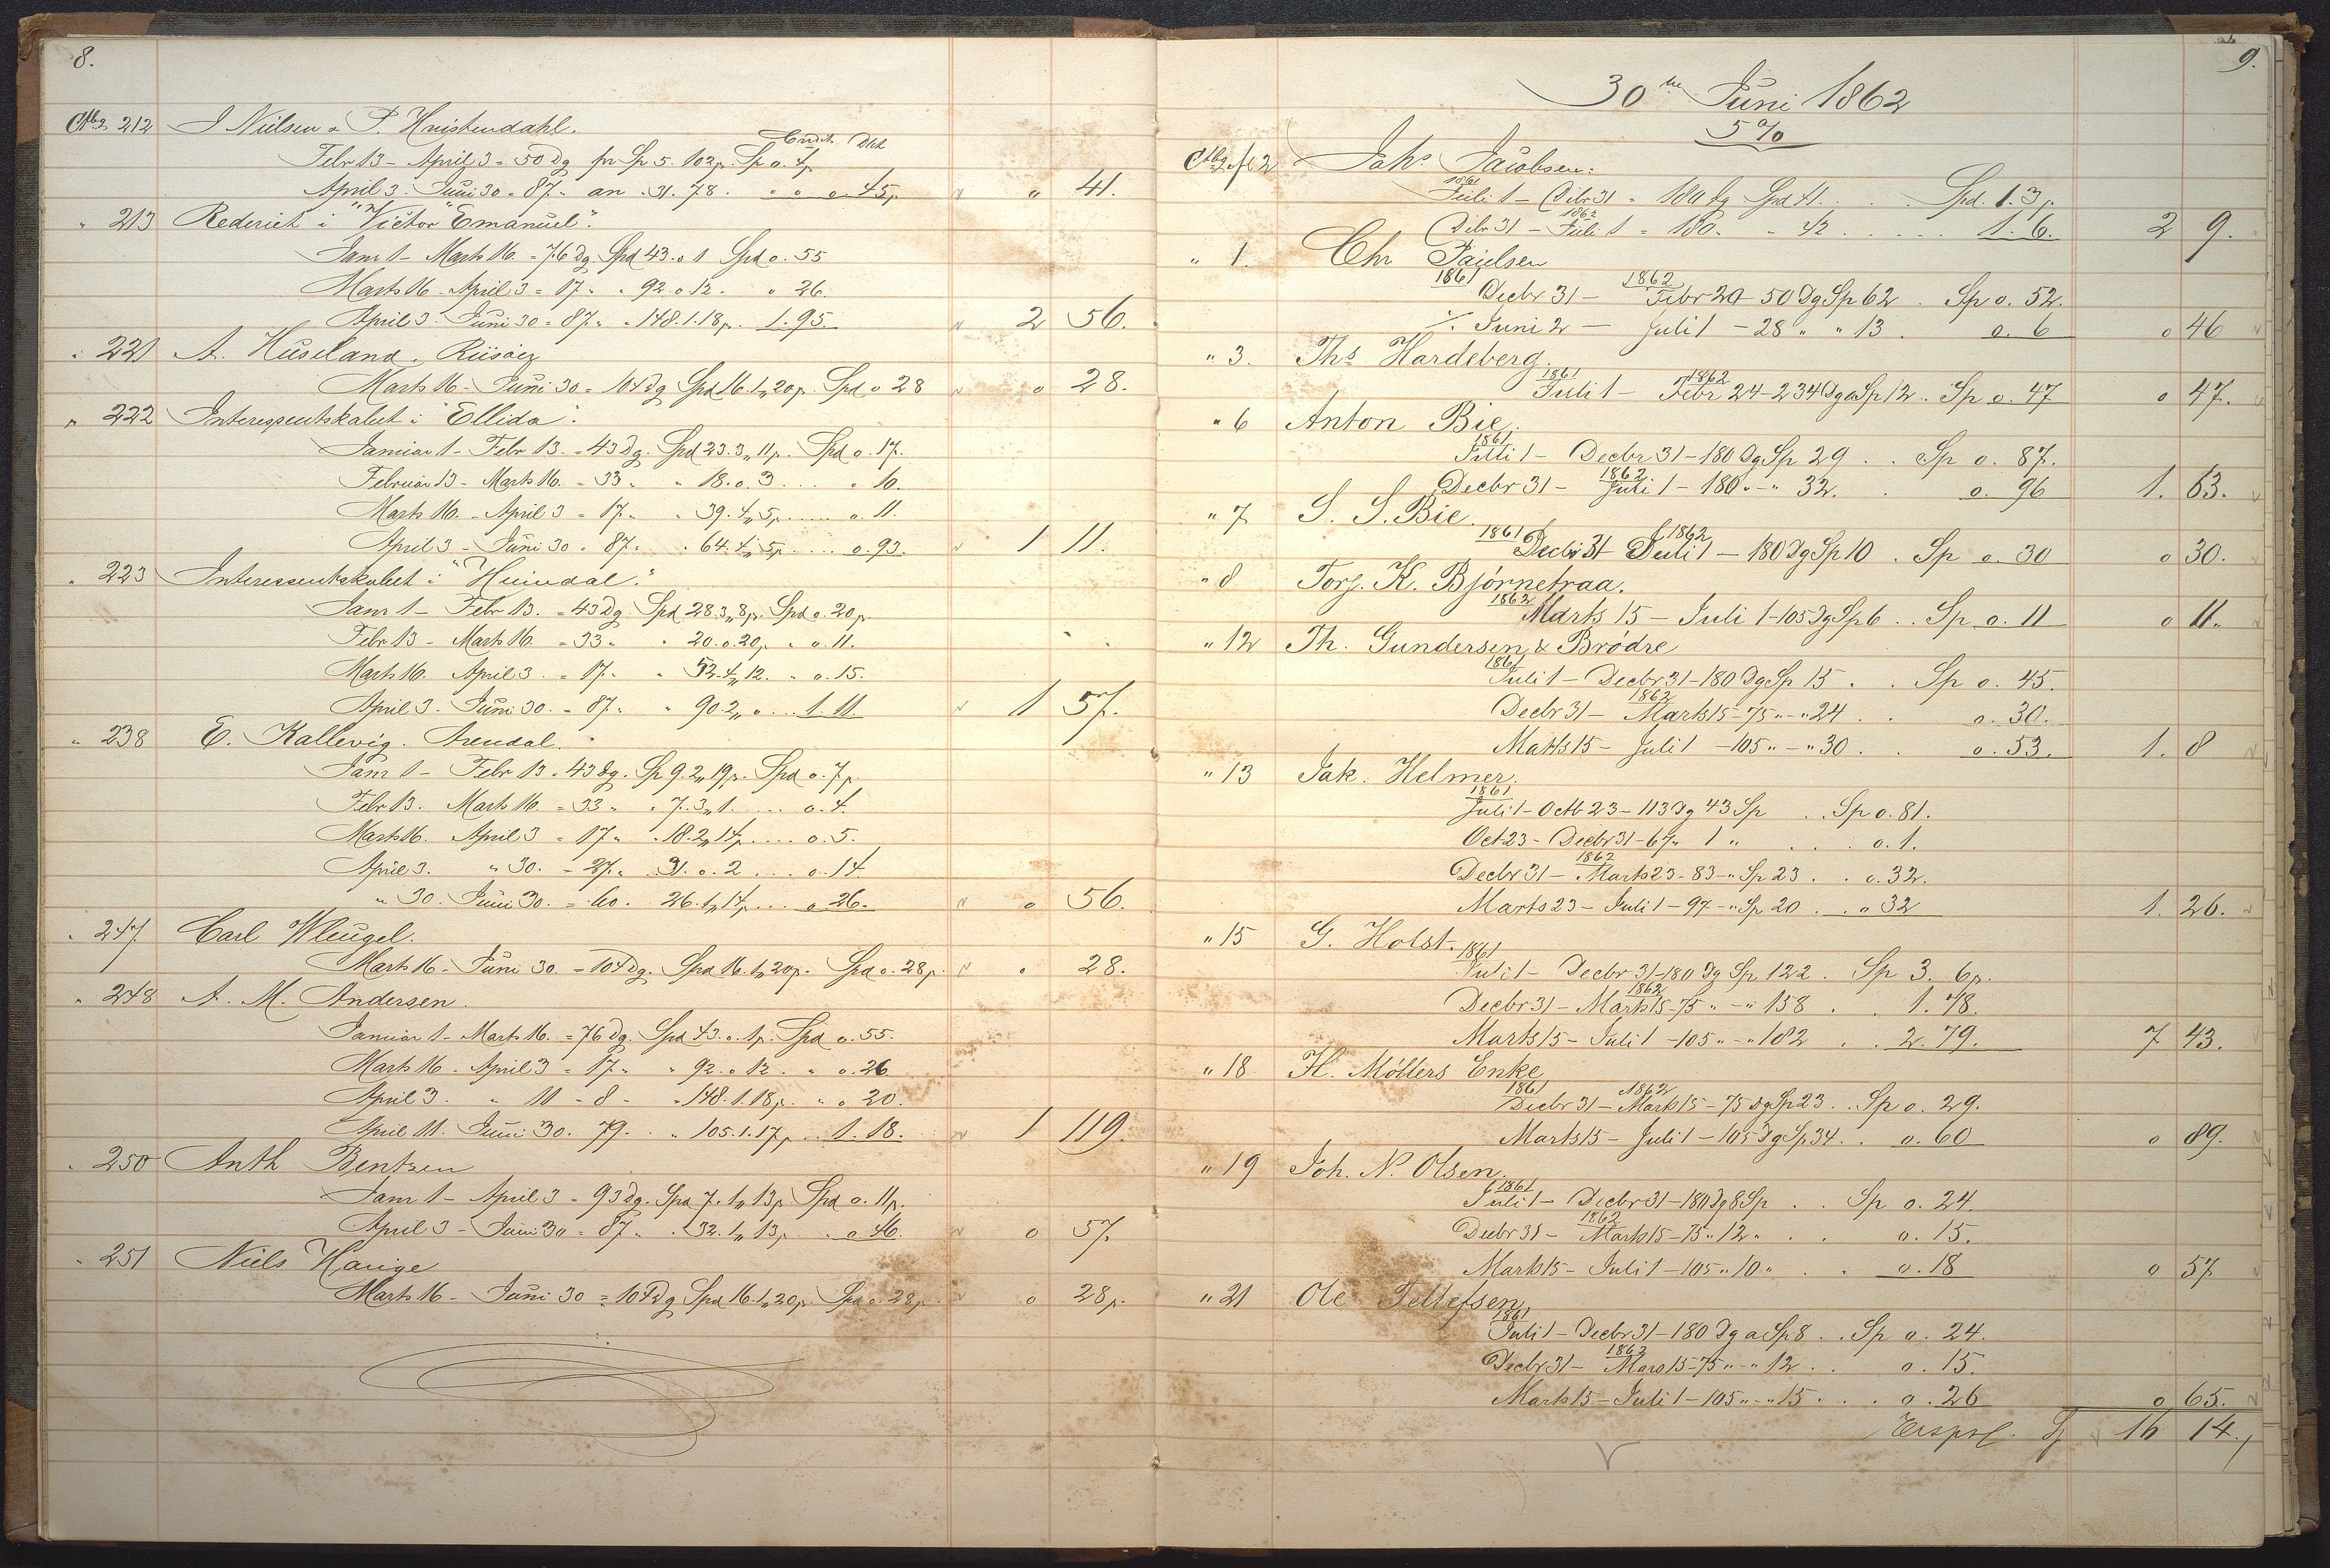 8.
Ctbg 212 J Nielsen & P. Knistendahl.
Credit Dbt
Febr 13 - April 3 = 50 Dg pr Sp 5. 102 p. Sp o. 4 p
April 3 - Juni 30 = 87 " an " 31. 78. " o o. 45 p " 41.
" 213 Rederiet i "Victor Emanuel".
Janr 1 - Marts 16. = 76 Dg. Spd 43. o 1 Spd o. 55
Marts 16 - April 3 = 17 " " 92. o 12. " 26
April 3. Juni 30 = 87 " " 148. 1. 18 p. 1. 95. 2 56.
" 221 A. Huseland. Riisöer
Marts 16 - Juni 30 = 104 Dg Spd 16. 1 " 20 p. Spd o 28 o 28.
" 222 Interessentskabet i "Ellida".
Januar 1 - Febr 13. = 43 Dg. Spd 23. 3 " 11 p. Spd o. 17.
Februar 13 - Marts 16. = 33 " " 18. o. 3 ... " 10.
Marts 16. - April 3 = 17 " " 39. 4 " 5 p ..... o. 11.
April 3 - Juni 30 = 87 " " 64. 4 " 5 p .... o. 93. 1 11.
" 223 Interessentskabet i "Heimdal".
Janr 1 - Febr 13. = 43 Dg. Spd 28. 3 " 8 p. Spd o. 20 p
Febr 13 - Marts 16 = 33 " " 20. o. 20 p " o. 11.
Marts 16. April 3. = 17 " " 52. 4 " 12. " o. 15.
April 3. Juni 30. = 87 " " 90. 2 " o ... 1. 11. 1 57.
" 238 E. Kallevig. Arendal.
Janr 1 - Febr 13. = 43 Dg. Sp 9. 2 " 19 p. Spd o. 7 p.
Febr 13. Marts 16. = 33 " " 7. 3 " 1 ..... o. 4.
Marts 16. April 3 = 17 " " 18. 2 " 14 p .... o. 5.
April 3. " 30. = 27 " " 31. o. 2 .... o. 14
" 30. Juni 30. = 60. 26. 1 " 14 p ... o 26. o 56.
" 247 Carl Wleugel.
Marts 16 - Juni 30 = 104 Dg. Spd 16. 1 " 20 p. Spd o. 28 p. o 28.
" 248 A. M. Andersen.
Januar 1 - Marts 16. = 76 Dg. Spd 43. o. 1 p. Spd o. 55.
Marts 16. April 3 = 17 " " 92. o 12. " o. 26
April 3. " 11 = 8 " " 148. 1. 18 p. " o 20.
April 11. Juni 30. 79. " " 105. 1. 17 p ... 1. 18. 1 119.
" 250 Anth Bentzen
Janr 1 - April 3 = 93 Dg. Spd 7. 1 " 13 p. Spd o. 11 p.
April 3 - Juni 30 = 87 " " 32. 1 " 13 p. . o 46. o 57.
" 251 Niels Hauge
Marts 16 - Juni 30 = 104 Dg Spd 16. 1 " 20 p. Spd o. 28 p. o 28 p.
9.
30te Juni 1862
5 %
Ctbg fol 2 Johs Jacobsen:
1861 Juli 1 - Dcbr 31 = 180 dg Spd 41. . . . Spd. 1. 3 p.
Dcbr 31 - 1862 Juli 1 = 180. " 42 ..... 1. 6. 2 9.
" 1. Chr Paulsen
1861 Decbr 31 - 1862 Febr 20 - 50 Dg Sp 62 . Sp o. 52.
% Juni 2 - Juli 1 - 28 " " 13 . o. 6 o 46
" 3. Ths Hardeberg.
1861 Juli 1 - 1862 Febr 24 - 234 Dg a Sp 12 .. Sp o. 47 o 47.
" 6 Anton Bie.
1861 Juli 1 - Decbr 31 - 180 Dg Sp 29 . . Sp o. 87.
Decbr 31 - 1862 Juli 1 - 180 " - " 32. . o. 96 1. 63.
" 7 S. S. Bie.
1861 Decbr 31 1862 Juli 1 - 180 Dg Sp 10 . Sp o. 30 o 30.
" 8 Torj. K. Bjørnetraa.
1862 Marts 15 - Juli 1 - 105 Dg Sp 6 . . Sp o. 11 o 11.
" 12 Th. Gundersen & Brødre
1861 Juli 1 - Decbr 31 - 180 Dg Sp 15 . . Sp o. 45.
Decbr 31 - 1862 Marts 15 - 75 " - " 24 . . o. 30.
Marts 15 - Juli 1 - 105 " - " 30 . . o. 53. 1. 8
" 13 Jak. Helmer.
1861 Juli 1 - Octb 23 - 113 Dg 43 Sp . . Sp o. 81.
Oct 23 - Decbr 31 - 67 " 1 " . . . o. 1.
Decbr 31 - 1862 Marts 23 - 83 - " Sp 23 . . o. 32.
Marts 23 - Juli 1 - 97 - " Sp 20 . . o 32 1. 26.
" 15 G. Holst.
1861 Juli 1 - Decbr 31 - 180 Dg Sp 122 . Sp 3. 6 p.
Decbr 31 - 1862 Marts 15 - 75 " - " 158 . . 1. 78.
Marts 15 - Juli 1 - 105 " - " 182 . . 2. 79. 7 43.
" 18 H. Möllers Enke
1861 Decbr 31 - 1862 Marts 15 - 75 Dg Sp 23 . . Sp o. 29.
Marts 15 - Juli 1 - 105 Dg Sp 34 . . o. 60 o 89.
" 19 Joh. N. Olsen.
1861 Juli 1 - Decbr 31 - 180 Dg 8 Sp . . Sp o. 24.
Decbr 31 - 1862 Marts 15 - 75 " 12 " . . o. 15.
Marts 15 - Juli 1 - 105 " 10 " . . o. 18 o 57
" 21 Ole Tellefsen,
1861 Juli 1 - Decbr 31 - 180 Dg a Sp 8 . . Sp o. 24.
Decbr 31 - 1862 Mars 15 - 75 " - " 12 . . o. 15.
Marts 15 - Juli 1 - 105 " - " 15 . . . o. 26 o 65.
16 14.